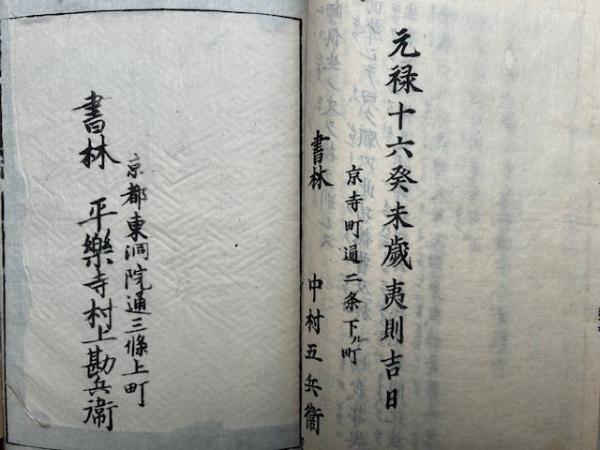 元禄十六癸未歳夷則吉日
京寺町通二条下ル町
書林 中村五兵衛
京都東洞院通三條上町
書林 平樂寺村上勘兵衛